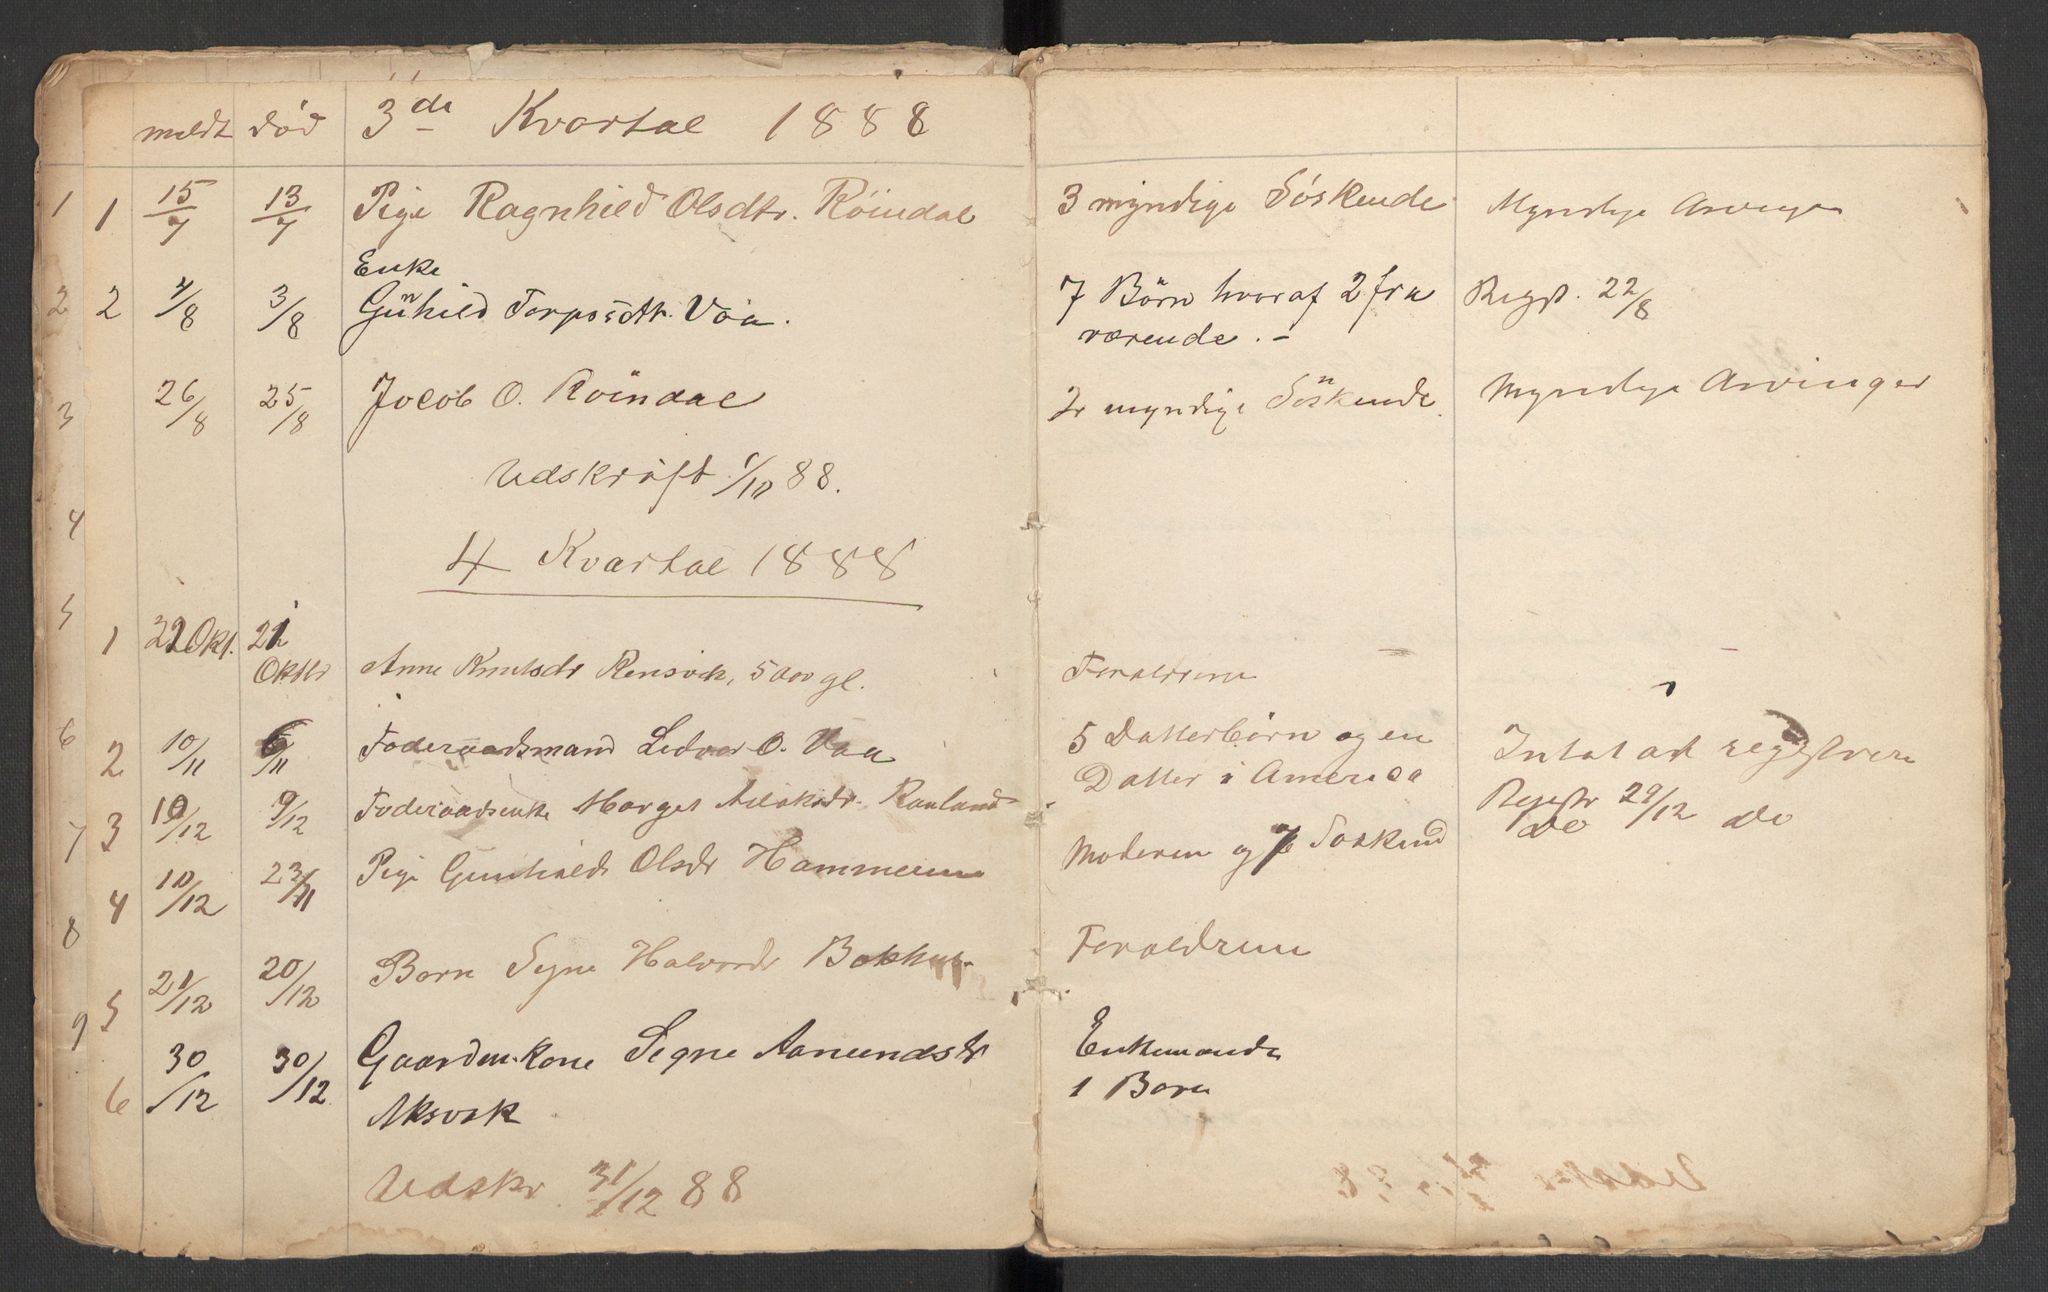 meldt død 3de Kvartal 1888
1 1 15/7 13/7 Pige Ragnhild Olsdtr. Röindal 3 myndige Söskende Myndige Arvinger
Enke
2 2 4/8 3/8 Guñhild Torposdtr. Vaa. 7 Börn hvoraf 2 fra Regst. 22/8
værende. -
3 26/8 25/8 Jocob O. Röindal 2 myndige Söskende. Myndige Arvinger
Udskrift 1/10 88.
4
4 Kvartal 1888
5
1 22 Okt. 21
Oktbr Anne Knutsdr Rensvik, 5 aar gl. Foraldrene
6 2 10/11 6/11 Foderaadsmand Ledvor O. Vaa 5 Datterbörn og en
Datter i America
7 3 10/12 9/12 Foderaadsenke Marget Aslaksdr. Rauland Regstr 29/12
Do Do
8 4 10/12 23/11 Pige Gunhild Olsdr Hammeren Moderen og 7 Soskend
5 21/12 20/12 Barn Signe Halvordr Bakhus Foraldrene
9
6 30/12 30/12 Gaardm. Kone Signe Aanundsdr Enkemanden
Aksvik 1 Barn
Udskr 31/12 88